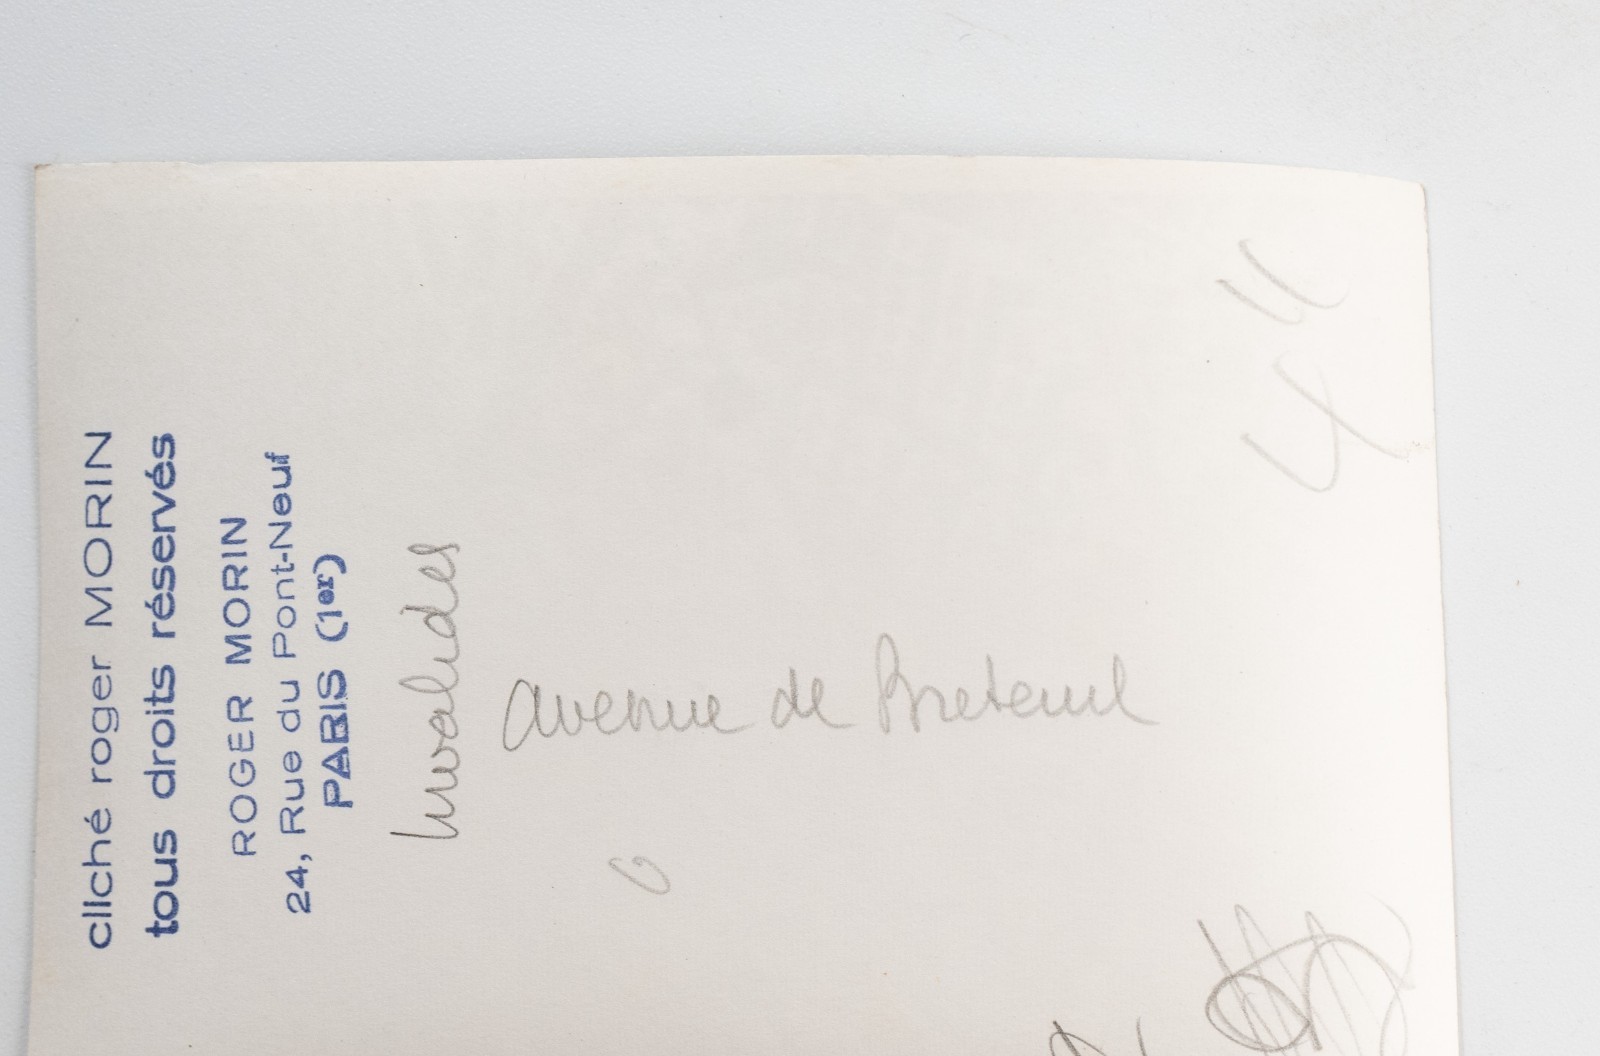 cliché roger MORIN
tous droits réservés
ROGER MORIN
24, Rue du Pont-Neuf
PARIS (1er)
Invalides
avenue de Breteuil